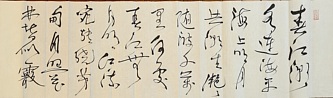 春江潮
水連海平
海上明月
共潮生灩
随波千萬
里何處
春江無
月明江流
宛轉繞芳
甸月照花
林皆似霰